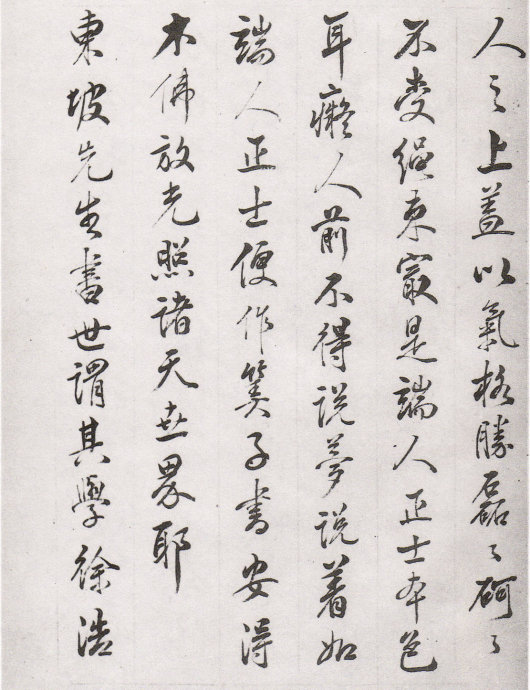 人之上蓋以氣格勝磊々砢々
不受繩束最是端人正士本色
耳癡人前不得說夢說着如
端人正士便作筭子書安得
木佛放光照諸天世界耶
東坡先生書世謂其學徐浩